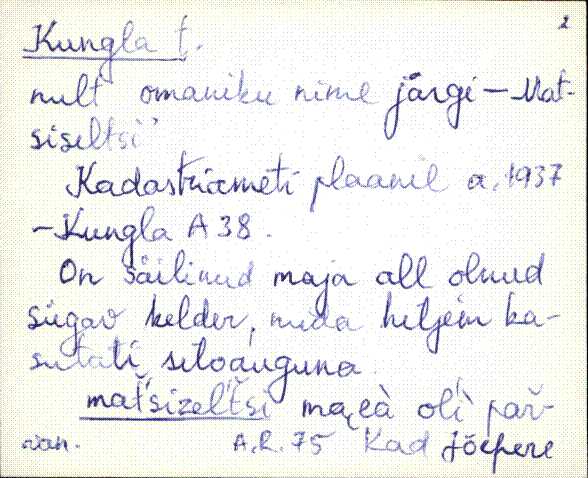 2
Kungla t.
nult omaniku nime järgi – Mat-
siseltsi
Kadastriameti plaanil a. 1937
– Kungla A 38.
On säilinud maja all olnud
sügav kelder, mida hiljem ka-
sutati siloauguna.
mat́sizelt́ši maea oli pař-
A.R. 75 Kad Jõepere